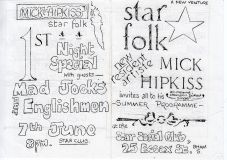 MICK HIPKISS'
star folk
1ST
Night
Special
with guests —
Mad Jocks
and
Englishmen
7th June
8pm. STAR CLUB.
A NEW VENTURE
star
folk
new
resident
artiste
MICK
HIPKISS
invites all to his
—SUMMER PROGRAMME—
at the
Star Social Club,
25 Essex St.